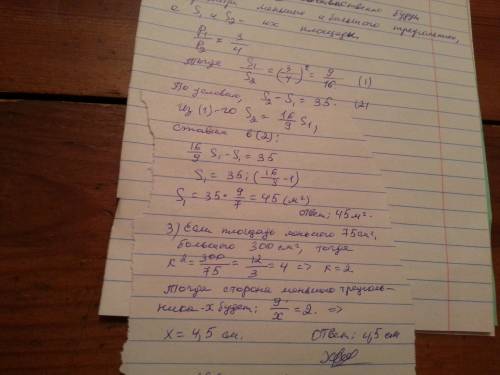 меньшего и большего треугольников,
а S₁ и S₂ = их площади.
P₁/P₂ = 3/4
Тогда S₁/S₂ = (3/4)² = 9/16 (1)
По условию, S₂ - S₁ = 35. (2)
Из (1)-го S₂ = 16/9 S₁,
Ставим в (2):
16/9 S₁ - S₁ = 35
S₁ = 35 : (16/9 - 1)
S₁ = 35 * 9/7 = 45 (м²)
Ответ: 45 м².
3) Если площадь меньшего 75 см²,
большого 300 см², тогда
K² = 300/75 = 12/3 = 4 => K = 2
Тогда сторона меньшего треуголь-
ника - x будет: 9/x = 2. =>
x = 4,5 см. Ответ: 4,5 см